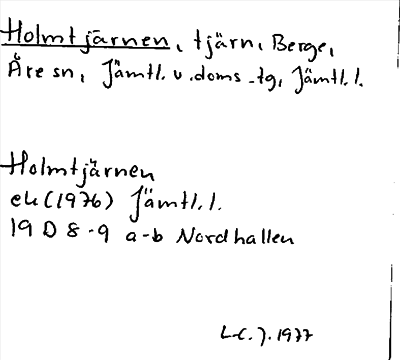 Holmtjärnen, tjärn, Berge,
Åre sn, Jämtl. v. doms.tg, Jämtl.l.
Holmtjärnen
ek (1976) Jämtl.l.
19 D 8-9 a-b Nordhallen
L-C. J. 1977